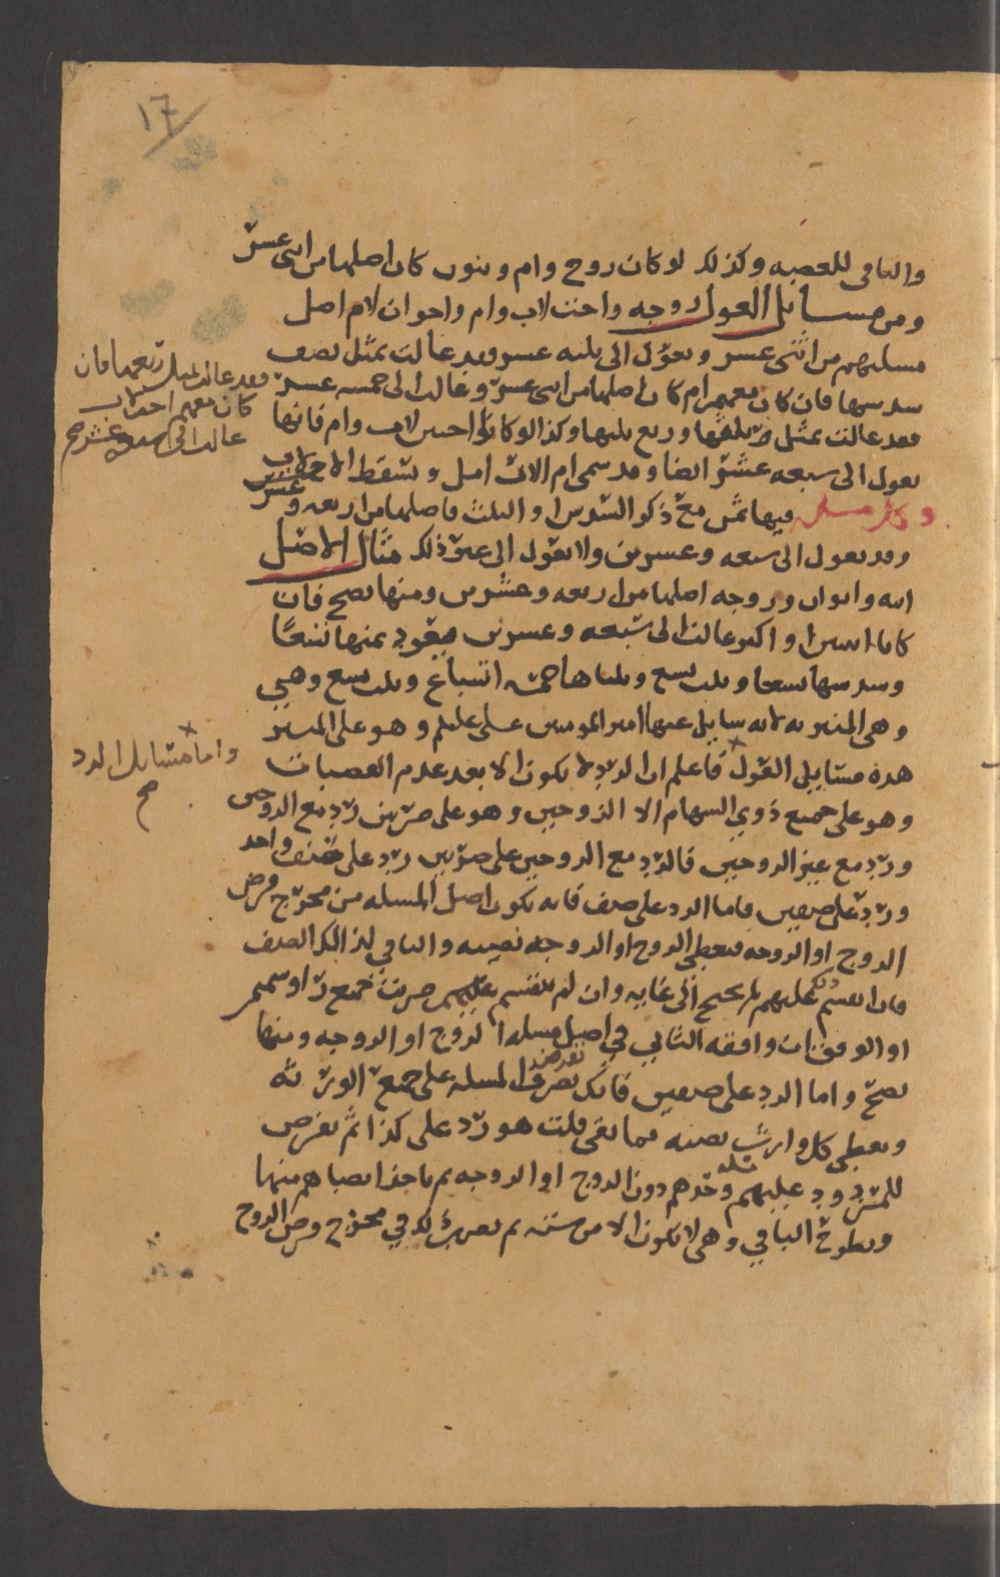 ١٧
والباقي للعصبه وكذلك لو كان زوج وام وبنون كان اصلها من اثنى عشر
ومن مسايل العول زوجه واخت لاب وام واخوان لام اصل
مسلتهم من اثنى عشر وتعول الى ثلثه عشر فقد عالت بمثل نصف
سدسها فان كان معهم ام كان اصلها من اثنى عشر وعالت الى خمسه عشر
فقد عالت بمثل ربعها فان
كان معهم اختان
عالت الى سبعه عشر صح
فقد عالت بمثل وربع ثلثها وكذا لو كانتا اختين لاب وام فانها
تعول الى سبعه عشر ايضا وقد سمى ام الارامل وتسقط الاخ لاب
وكل مسله فيها ثمن مع ذكر السدس او الثلث فاصلها من اربعه وعشرين
وقد تعول الى سبعه وعشرين ولا تعول الى غير ذلك مثال الاصل
ابنه وابوان وزوجه اصلها من اربعه وعشرين ومنها تصح فان
كانا اثنتين او اكثر عالت الى سبعه وعشرين فيعود ثمنها تسعا
وسدسها تسعا وثلث تسع وثلثاها خمسه اتساع وثلث تسع وهي
وهي المنبريه لانه سايل عنها امير المومنين على عليلم وهو على المنبر
هذه مسايل العول فاعلم ان الرد لا يكون الا بعد عدم العصبات
واما مسايل الرد
صح
وهو على جميع ذوي السهام الا الزوجين وهو على ضربين رد مع الزوجين
ورد مع غير الزوجين فالرد مع الزوجين على ضربين رد على صنف واحد
ورد على صنفين فاما الرد على صنف فانه يكون اصل المسله من مخرج فرض
الزوج او الزوجه فيعطى الزوج او الزوجه نصيبه والباقي لذلك الصنف
فان انقسم عليهم لم يحتج الى غايه وان لم ينقسم عليهم ضربت جميع رؤوسهم
او الوفق ان وافقه الثاني في اصل مسله الزوج او الزوجه ومنها
تصح واما الرد على صنفين فانك تفرض المسله على جميع الورثه
ويعطى كل وارث نصيبه فما بقى قلت هو رد على كذا ثم تفرض
للمردود عليهم مسله وحدهم دون الزوج او الزوجه ثم ياخذ انصباهم منها
ويطرح الباقي وهي لا تكون الا من سته ثم تضرب ذلك في مخرج فرض الزوج